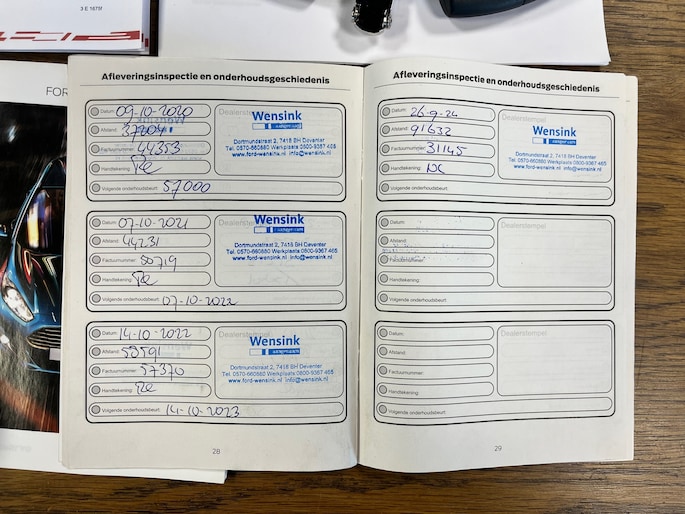 3 E 1675f
FOR
Afleveringsinspectie en onderhoudsgeschiedenis
Datum: 09-10-2020
Afstand: 37204
Factuurnummer: 44353
Handtekening:
Volgende onderhoudsbeurt: 57000
Dealerstempel
Wensink
Dortmundstraat 2, 7418 BH Deventer
Tel. 0570-660880 Werkplaats 0800-9367 465
www.ford-wensink.nl info@wensink.nl
Datum: 07-10-2021
Afstand: 44231
Factuurnummer: 50719
Handtekening:
Volgende onderhoudsbeurt: 07-10-2022
Dealerstempel
Wensink
Dortmundstraat 2, 7418 BH Deventer
Tel. 0570-660880 Werkplaats 0800-9367 465
www.ford-wensink.nl info@wensink.nl
Datum: 14-10-2022
Afstand: 53591
Factuurnummer: 57370
Handtekening:
Volgende onderhoudsbeurt: 14-10-2023
Dealerstempel
Wensink
Dortmundstraat 2, 7418 BH Deventer
Tel. 0570-660880 Werkplaats 0800-9367 465
www.ford-wensink.nl info@wensink.nl
28
Afleveringsinspectie en onderhoudsgeschiedenis
Datum: 26-9-24
Afstand: 91632
Factuurnummer: 31145
Handtekening:
Volgende onderhoudsbeurt:
Dealerstempel
Wensink
Dortmundstraat 2, 7418 BH Deventer
Tel. 0570-660880 Werkplaats 0800-9367 465
www.ford-wensink.nl info@wensink.nl
Datum:
Afstand:
Factuurnummer:
Handtekening:
Volgende onderhoudsbeurt:
Dealerstempel
Datum:
Afstand:
Factuurnummer:
Handtekening:
Volgende onderhoudsbeurt:
Dealerstempel
29